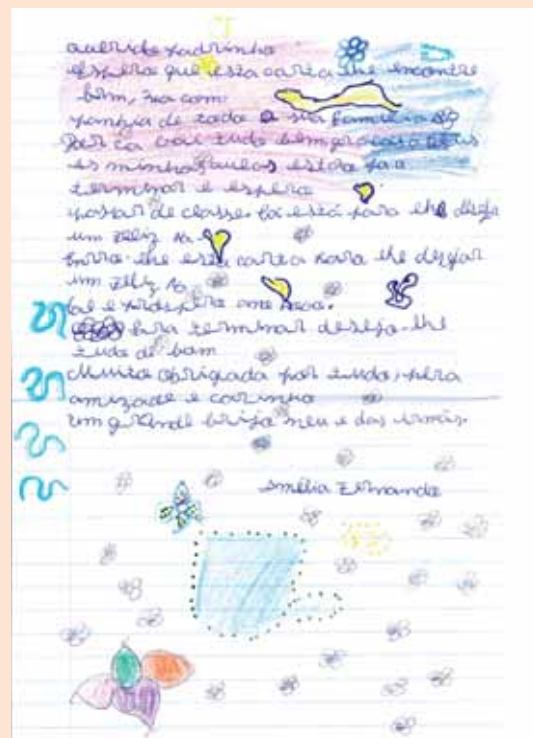 querido padrinho
espero que esta carta lhe encontre
bem, na com
panhia de toda a sua familia
Por ca vai tudo bem graças a Deus
as minhas aulas estão para
terminar e espero
passar de classe.
um feliz na
lhe esta carta para lhe desejar
um feliz na
tal e prospero ano novo.
Para terminar deseja-lhe
tudo de bom
Muita obrigada por tudo, pela
amizade e carinho
um grande beijo meu e das irmãs.